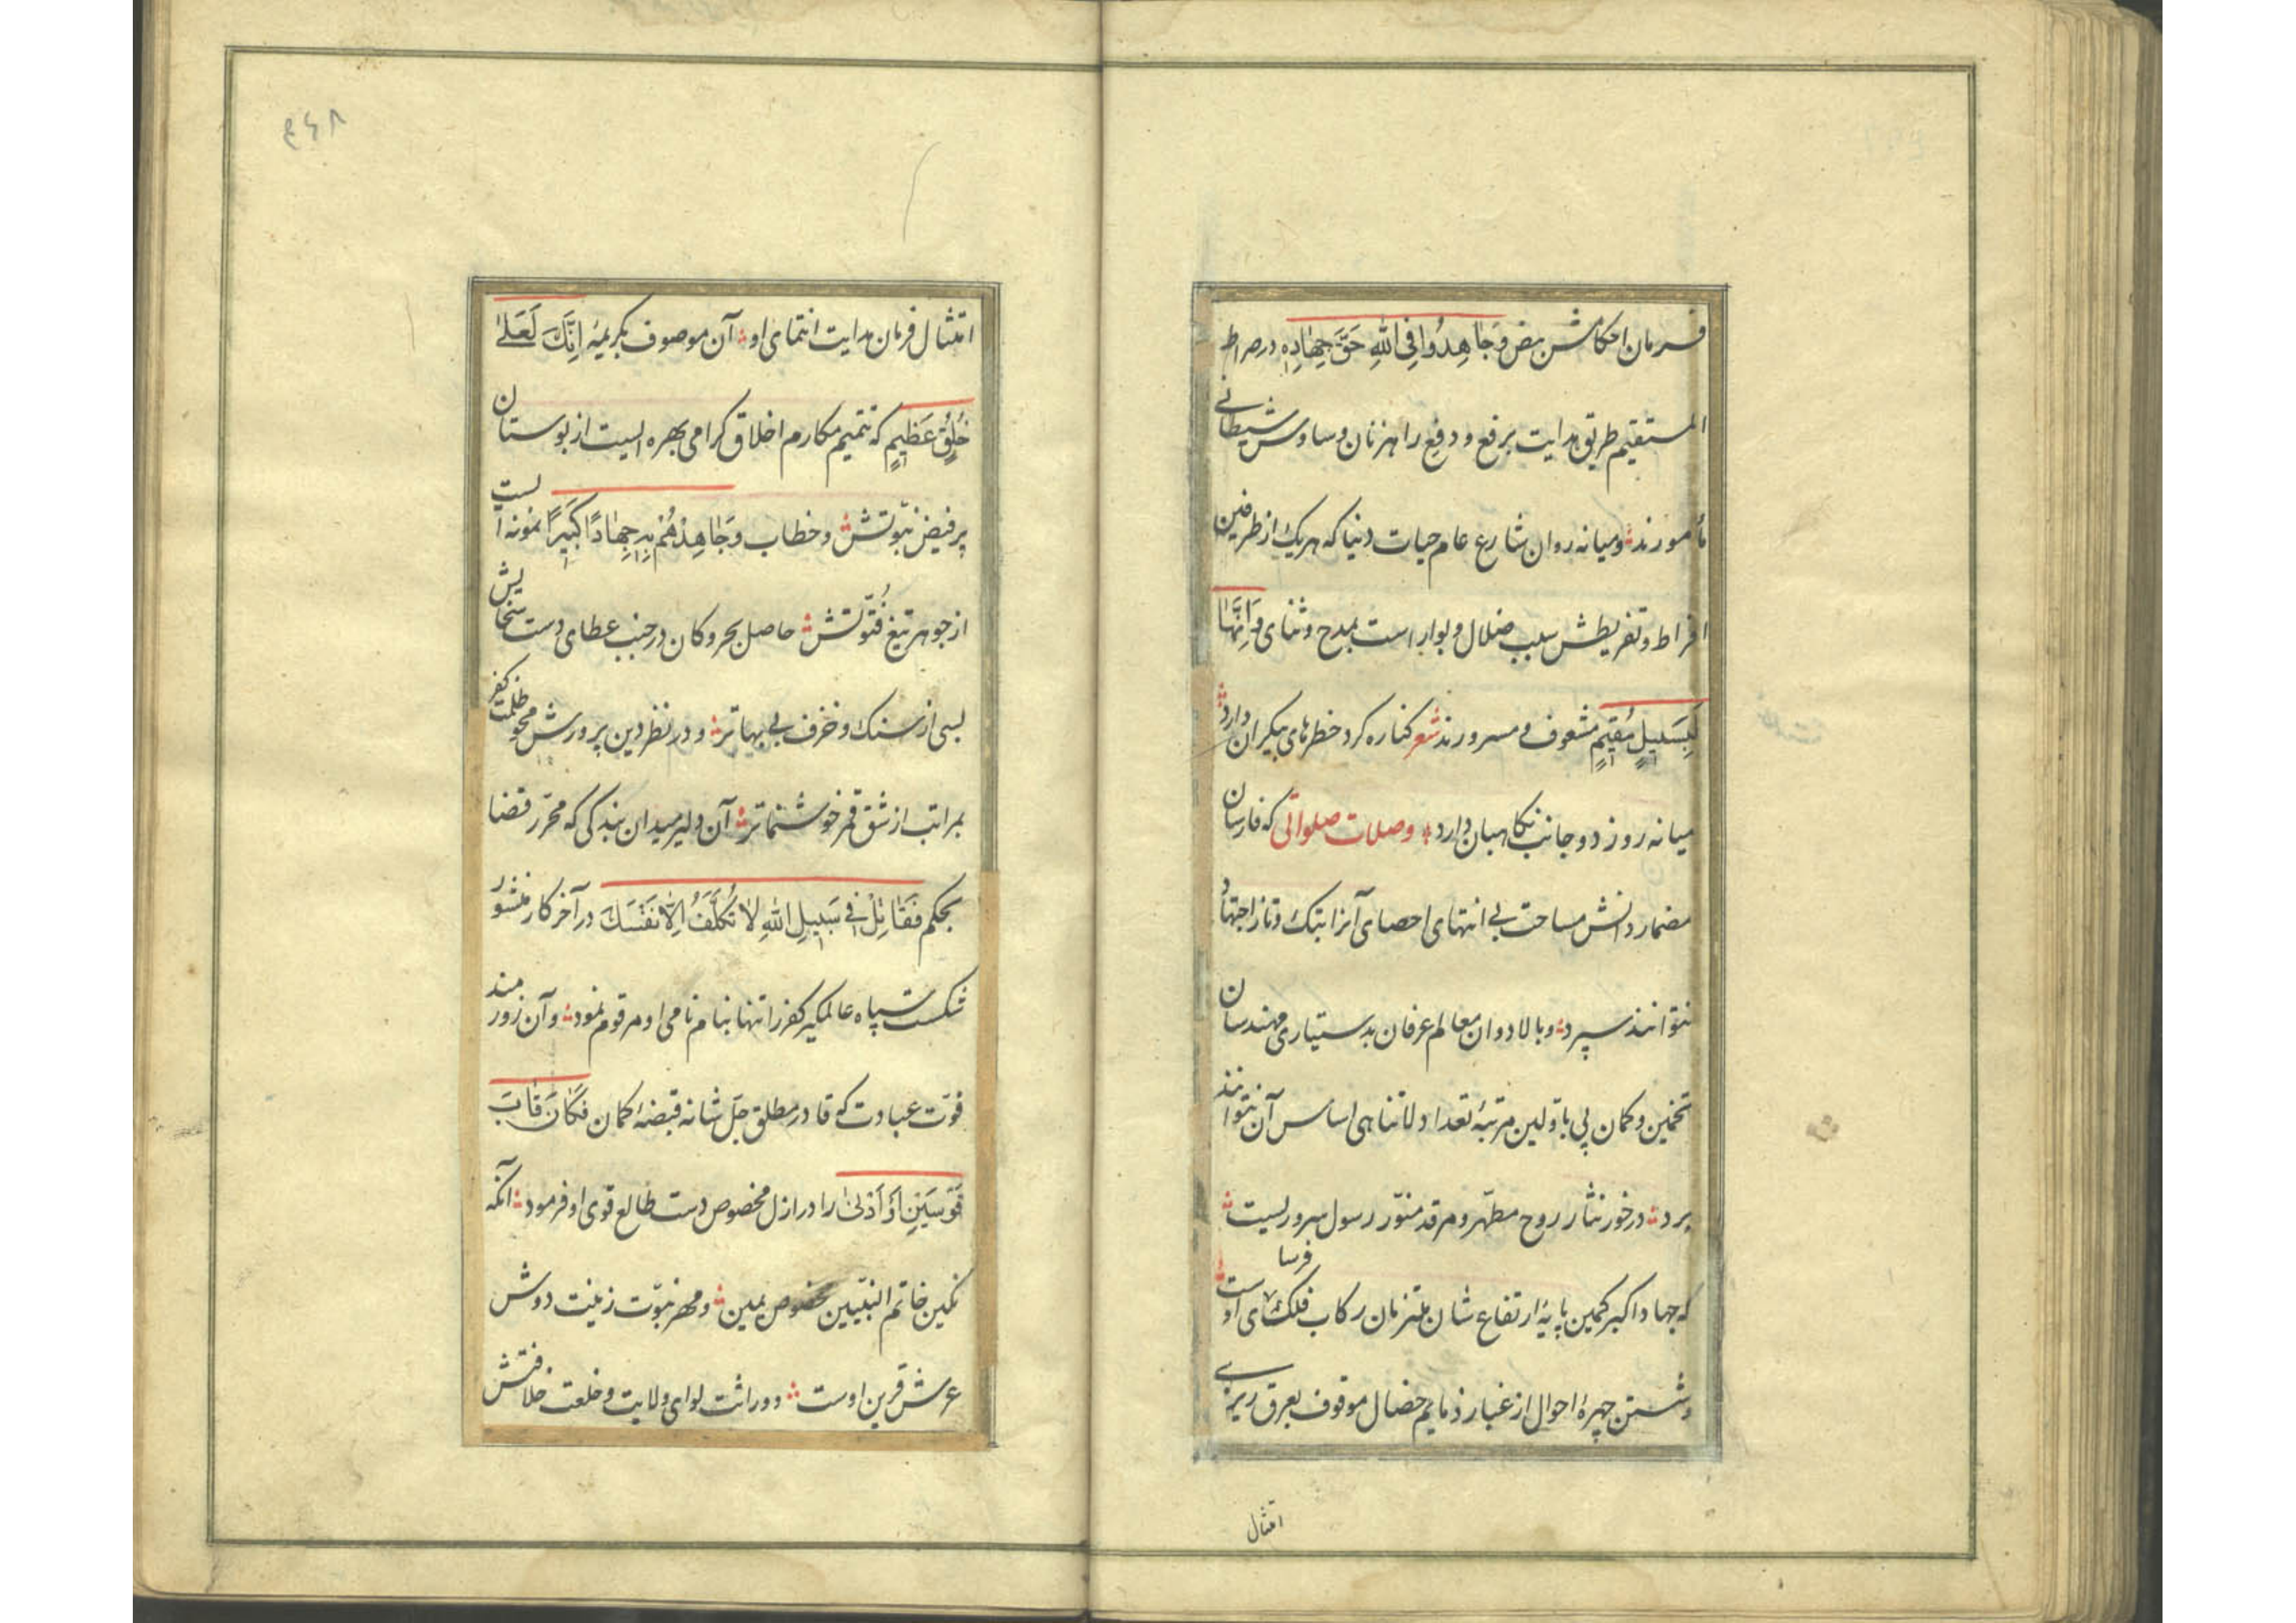 فرمان احکامش بنص وَجَاهِدُوا فِی اللهِ حَقَّ جِهَادِهِ در صراط
المستقیم طریق هدایت برفع و دفع راهزنان وساوس شیطانی
مأمورند و میانه روان شارع عام حیات دنیا که هر یک از طرفین
افراط و تفریطش سبب ضلال و بوار است بمدح و ثنای وَاِنَّهَا
لَبِسَبِیلٍ مُقِیمٍ مشعوف و مسرورند شعر کناره کرد خطرهای بیکران دارد
میانه روز دو جانب نکاهبان دارد وصلات صلواتی که فارسان
مضمار دانش مساحت بی انتهای احصای آنرا بتک و تاز اجتهاد
نتوانند سپرد و بالادوان معالم عرفان بدستیاری مهندسان
تخمین و کمان پی باولین مرتبهٔ تعداد لاتناهی اساس آن نتوانند
برد در خور نثار روح مطهر و مرقد منوّر رسول سروریست
که جهاد اکبر کمین پایهٔ ارتفاع شان ملتزمان رکاب فلک فرسای اوست
و شستن چهرهٔ احوال از غبار ذمایم خصال موقوف بعرق ریزی
امتثال
۴۶۸
امتثال فرمان هدایت انتمای او آن موصوف بکریمهٔ اِنَّکَ لَعَلیٰ
خُلُقٍ عَظِیمٍ که تتمیم مکارم اخلاق کرامی بهره ایست از بوستان
پر فیض نبوّتش و خطاب وَجَاهِدْهُمْ بِهِ جِهَادًا کَبِیرًا نمونه ایست
از جوهر تیغ فتوّتش حاصل بحر و کان در جنب عطای دست سخایش
بسی از سنک و خزف بی بهاتر و در نظر دین پرورش محو ظلمت کفر
بمراتب از شق قمر خوشنماتر آن دلیر میدان بندکی که محرّر قضا
بحکم فَقَاتِلْ فِی سَبِیلِ اللهِ لَا تُکَلَّفُ اِلَّا نَفْسَکَ در آخر کار منشور
شکست سپاه عالمکیر کفر را تنها بنام نامی او مرقوم نمود و آن زورمند
قوّت عبادت که قادر مطلق جلّ شانه قبضهٔ کمان فَکَانَ قَابَ
قَوْسَیْنِ اَوْ اَدْنیٰ را در ازل مخصوص دست طالع قوی او فرمود آنکه
نکین خاتم النبیّین مخصوص یمین و مهر نبوّت زینت دوش
عرش قرین اوست و وراثت لوای ولایت و خلعت خلافتش